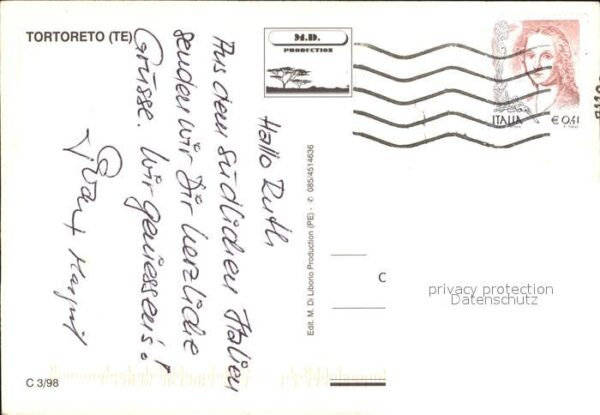 TORTORETO (TE)
M.D.
PRODUCTION
ITALIA € 0,41
Hallo Ruth
Aus dem südlichen Italien
senden wir Dir herzliche
Grüsse. Wir geniessen's!
+ Margrit
Edit. M. Di Liborio Production (PE) - ✆ 085/4514636
C
privacy protection
Datenschutz
C 3/98